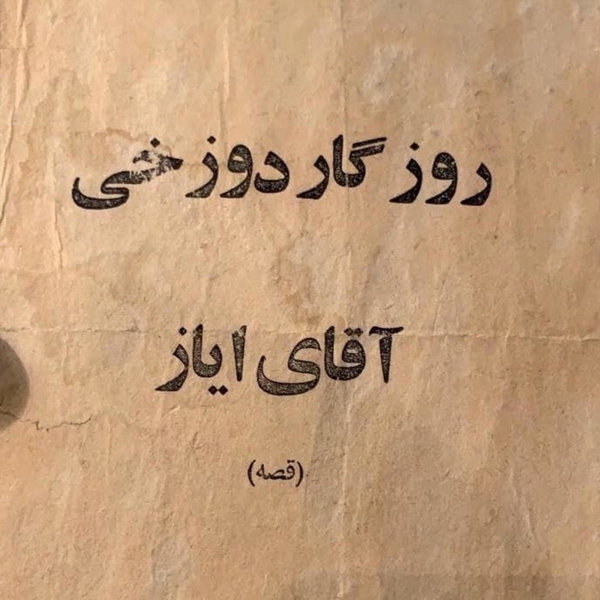 روزگار دوزخی
آقای ایاز
(قصه)